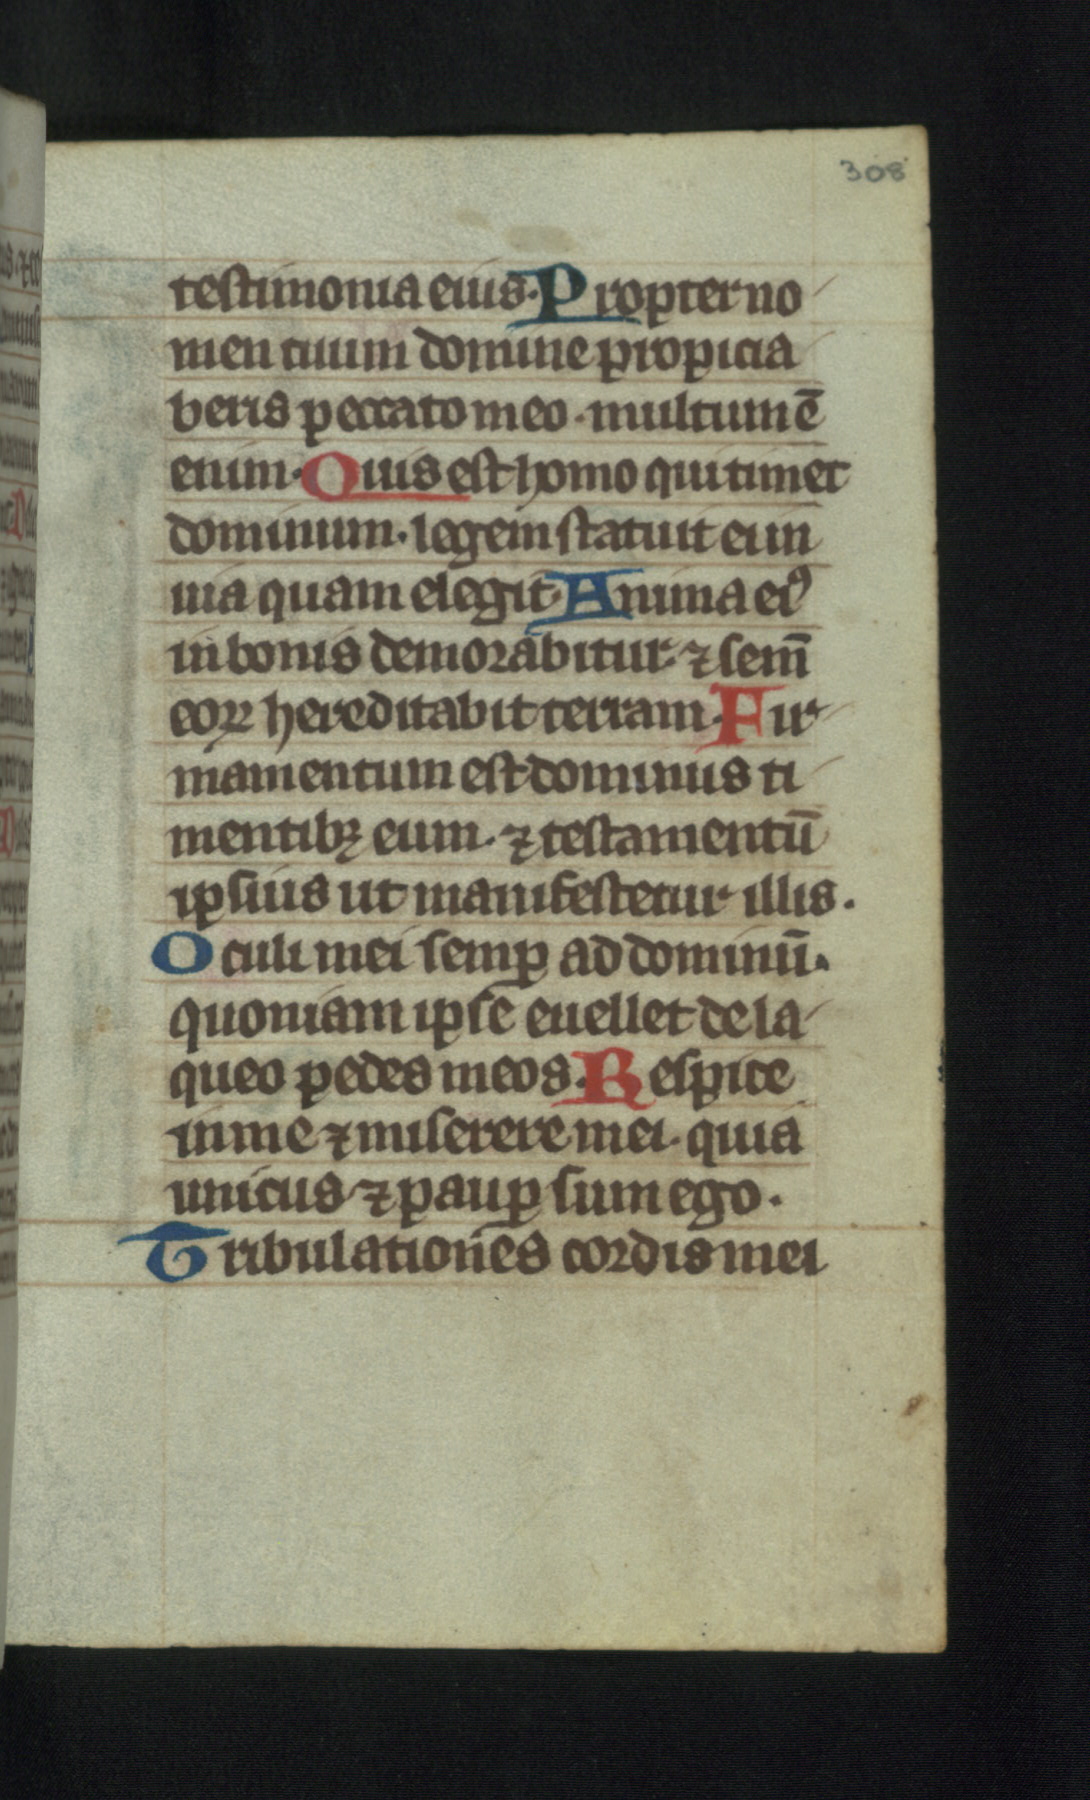 308
testimonia eius. Propter no
men tuum domine propicia
beris peccato meo. multum ē
enim. Quis est homo qui timet
dominum. legem statuit ei in
uia quam elegit. Anima eiꝰ
in bonis demorabitur. ⁊ sem̄
eoꝝ hereditabit terram. Fir
mamentum est dominus ti
mentibꝫ eum. ⁊ testamentū
ipsius ut manifestetur illis.
Oculi mei semꝑ ad dominū.
quoniam ipse euellet de la
queo pedes meos. Respice
in me ⁊ miserere mei. quia
unicus ⁊ pauꝑ sum ego.
Tribulationes cordis mei